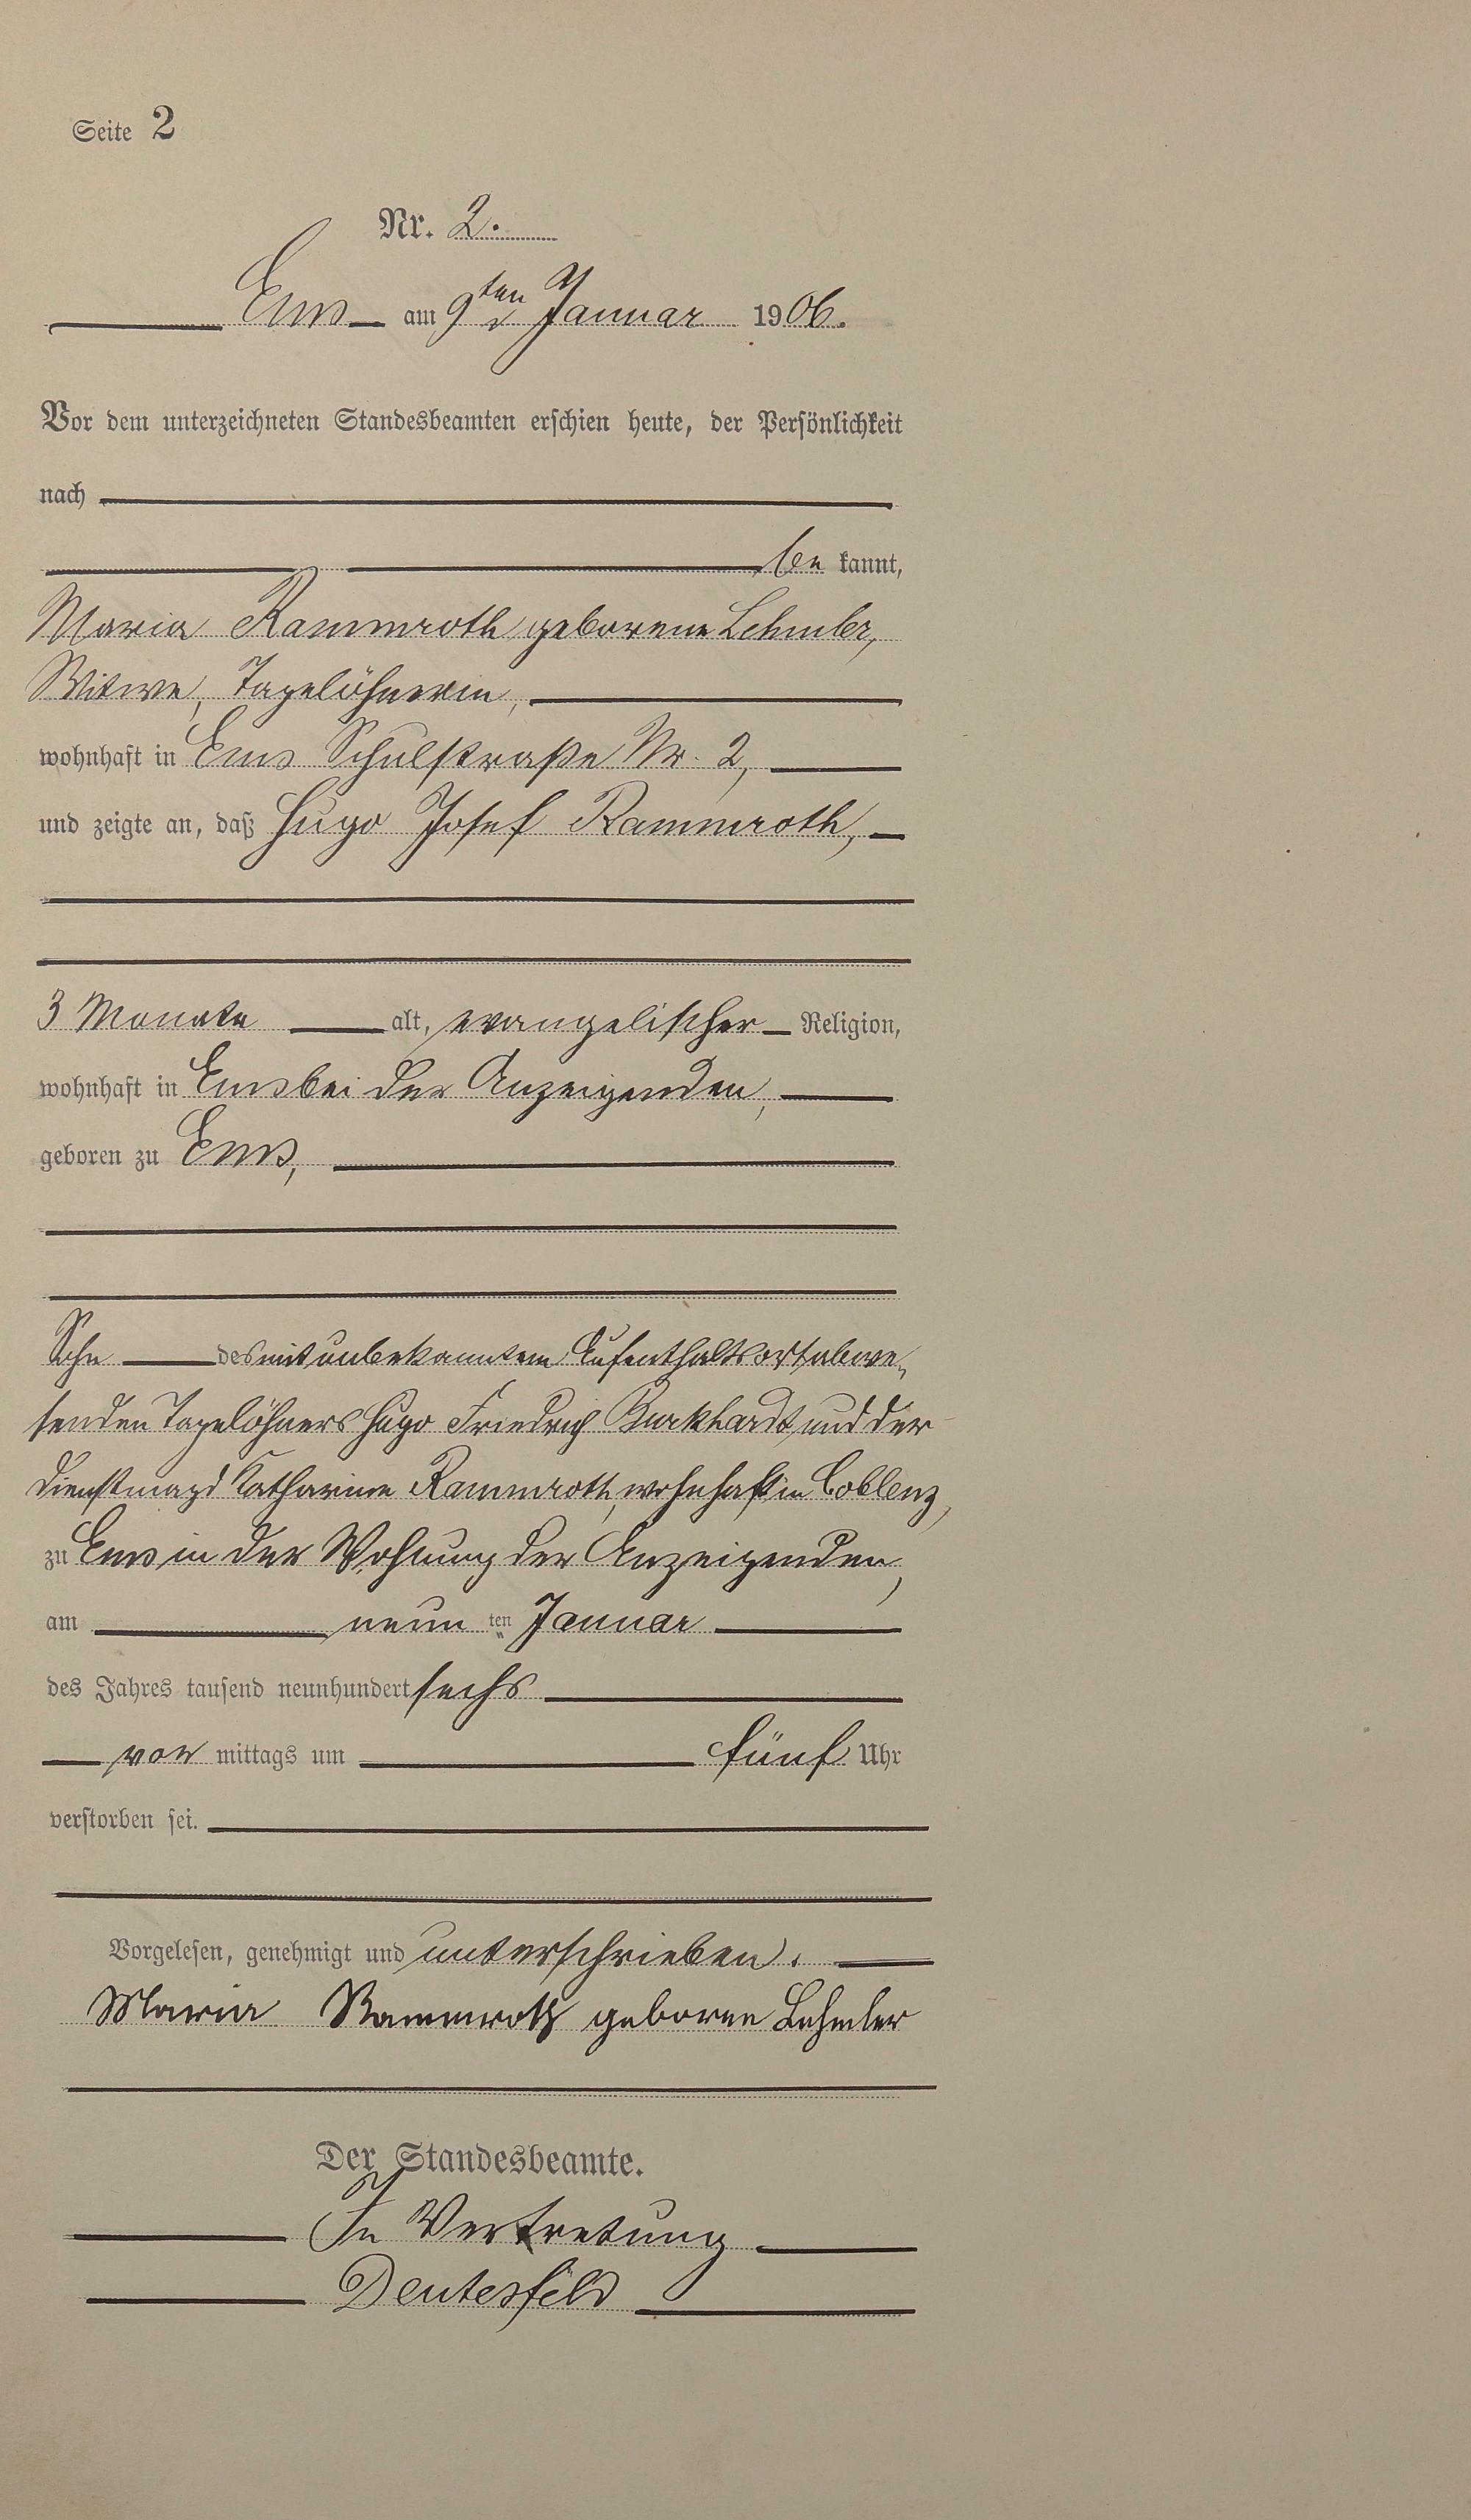 Seite 2
Nr. 2.
Ems am 9ten Januar 1906.
Vor dem unterzeichneten Standesbeamten erschien heute, der Persönlichkeit
nach
be kannt,
Maria Rammroth geborene Lehmler,
Witwe, Tagelöhnerin,
wohnhaft in Ems Schulstraße Nr. 2,
und zeigte an, daß Hugo Josef Rammroth,
3 Monate alt, evangelischer Religion,
wohnhaft in Ems bei der Anzeigenden,
geboren zu Ems,
Sohn des mit unbekanntem Aufenthaltsort abwe-
senden Tagelöhners Hugo Friedrich Burkhardt und der
Dienstmagd Katharina Rammroth, wohnhaft in Coblenz,
zu Ems in der Wohnung der Anzeigenden,
am neun ten Januar
des Jahres tausend neunhundert sechs
vor mittags um fünf Uhr
verstorben sei.
Vorgelesen, genehmigt und unterschrieben.
Maria Rammroth geborne Lehmler
Der Standesbeamte.
In Vertretung
Deutesfeld